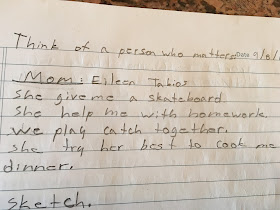 Think of a person who matters
Mom: Eileen Tabios
She give me a skateboard
She help me with homework.
We play catch together.
She try her best to cook me
dinner.
Sketch.